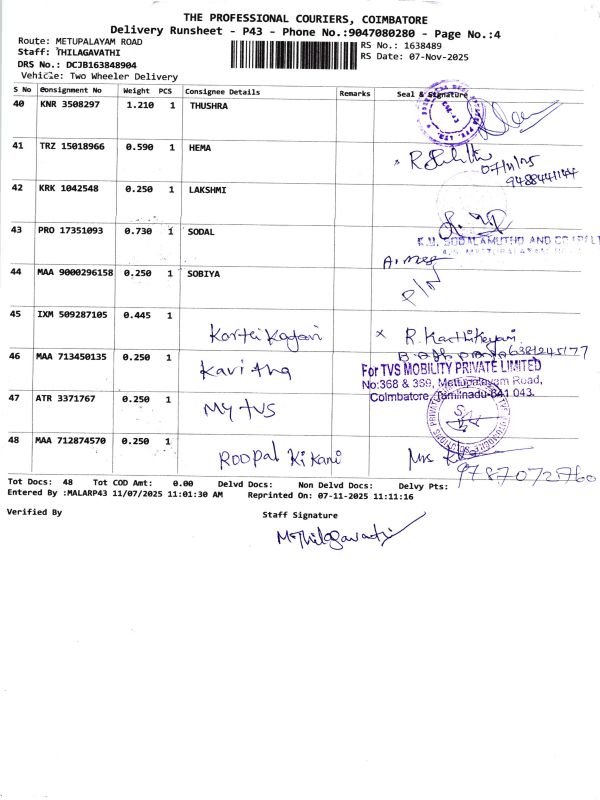 THE PROFESSIONAL COURIERS, COIMBATORE
Delivery Runsheet - P43 - Phone No.:9047080280 - Page No.:4
Route: METUPALAYAM ROAD
RS No.: 1638489
Staff: THILAGAVATHI
RS Date: 07-Nov-2025
DRS No.: DCJB163848904
Vehicle: Two Wheeler Delivery
S No Consignment No Weight PCS Consignee Details Remarks Seal & Signature
40 KNR 3508297 1.210 1 THUSHRA
41 TRZ 15018966 0.590 1 HEMA
07/11/25
9488441144
42 KRK 1042548 0.250 1 LAKSHMI
43 PRO 17351093 0.730 1 SODAL
44 MAA 9000296158 0.250 1 SOBIYA
45 IXM 509287105 0.445 1
Kartei Kayani x R. Karthikeyani
6381245177
46 MAA 713450135 0.250 1 Kavitha
For TVS MOBILITY PRIVATE LIMITED
No:368 & 369, Mettupalayam Road,
Coimbatore, Tamilnadu-641 043.
47 ATR 3371767 0.250 1 MY TVS
48 MAA 712874570 0.250 1
Roopal Kikani Mrs
9787072760
Tot Docs: 48 Tot COD Amt: 0.00 Delvd Docs: Non Delvd Docs: Delvy Pts:
Entered By :MALARP43 11/07/2025 11:01:30 AM Reprinted On: 07-11-2025 11:11:16
Verified By Staff Signature
M.Thilagavathi